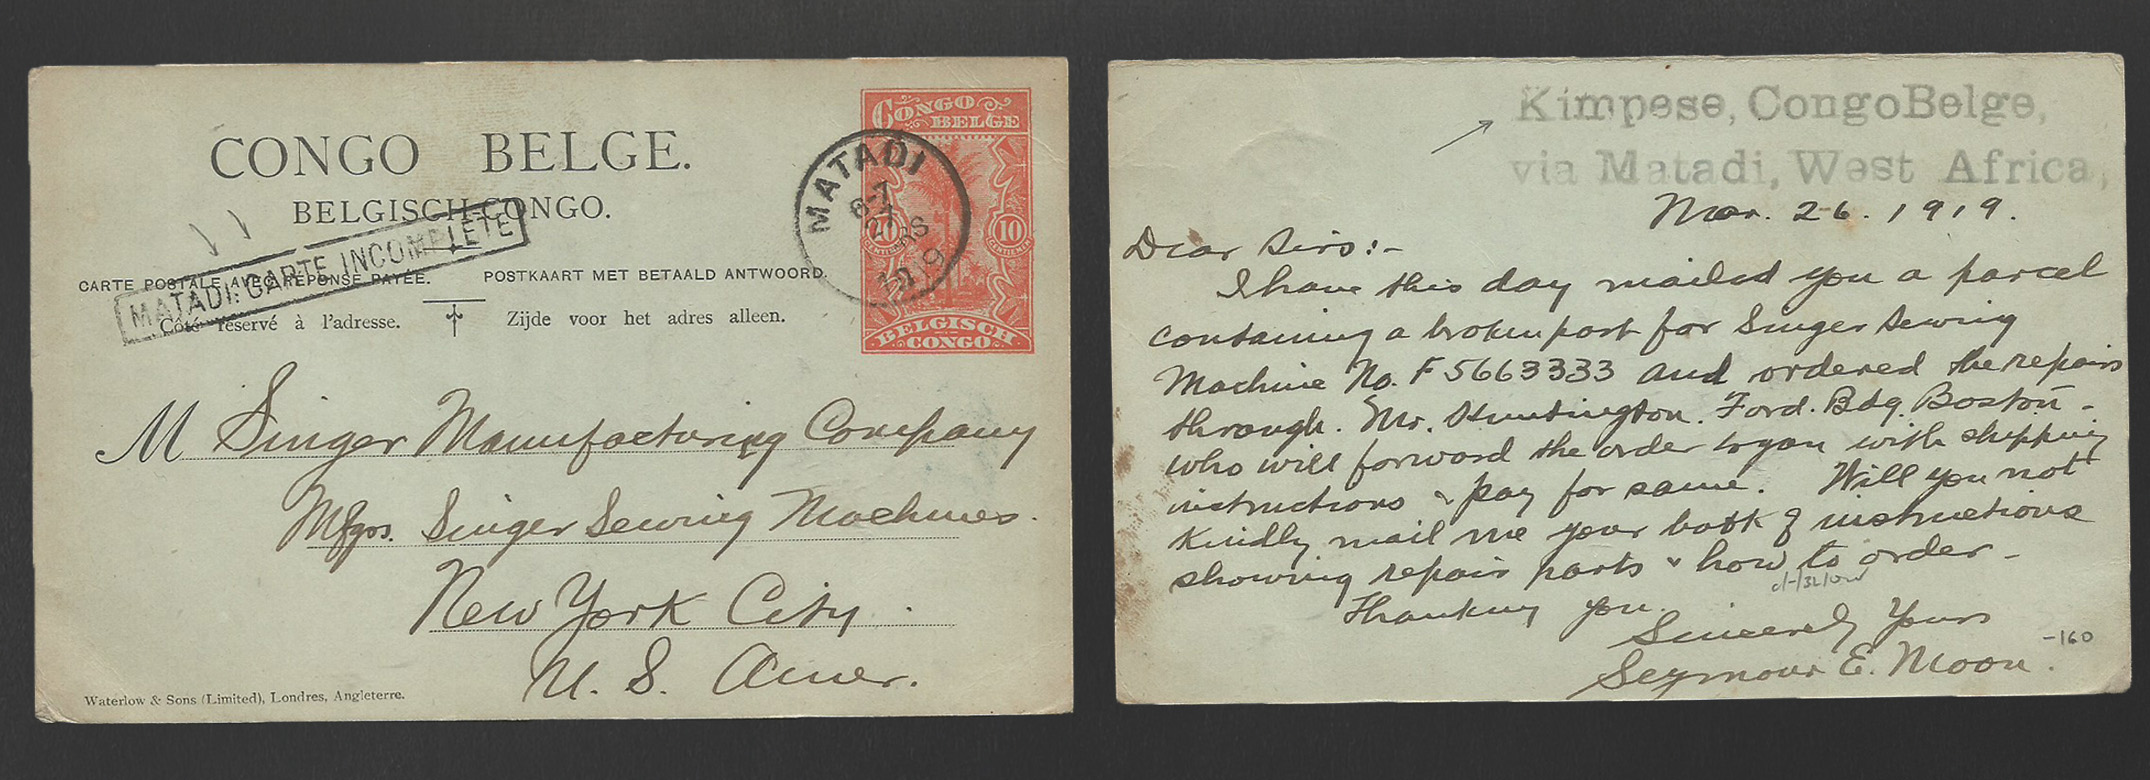 CONGO BELGE.
BELGISCH-CONGO.
MATADI: CARTE INCOMPLETE
CARTE POSTALE AVEC RÉPONSE PAYÉE. POSTKAART MET BETAALD ANTWOORD.
Côté réservé à l'adresse. Zijde voor het adres alleen.
CONGO
BELGE
10 10
CENTIEMEN
BELGISCH
CONGO
MATADI
6-7
27
MARS
1919
M Singer Manufacturing Company
Mfgrs. Singer Sewing Machines.
New York City.
U. S. Amer.
Waterlow & Sons (Limited), Londres, Angleterre.
Kimpese, CongoBelge,
via Matadi, West Africa,
Mar. 26. 1919.
Dear Sirs:-
I have this day mailed you a parcel
containing a broken part for Singer Sewing
Machine No. F5663333 and ordered the repairs
through. Mr. Huntington. Ford. Bdg. Boston -
who will forward the order to you with shipping
instructions & pay for same. Will you not
kindly mail me your book of instructions
showing repair parts & how to order -
Thanking you.
Sincerely Yours
Seymour E. Moon.
-160